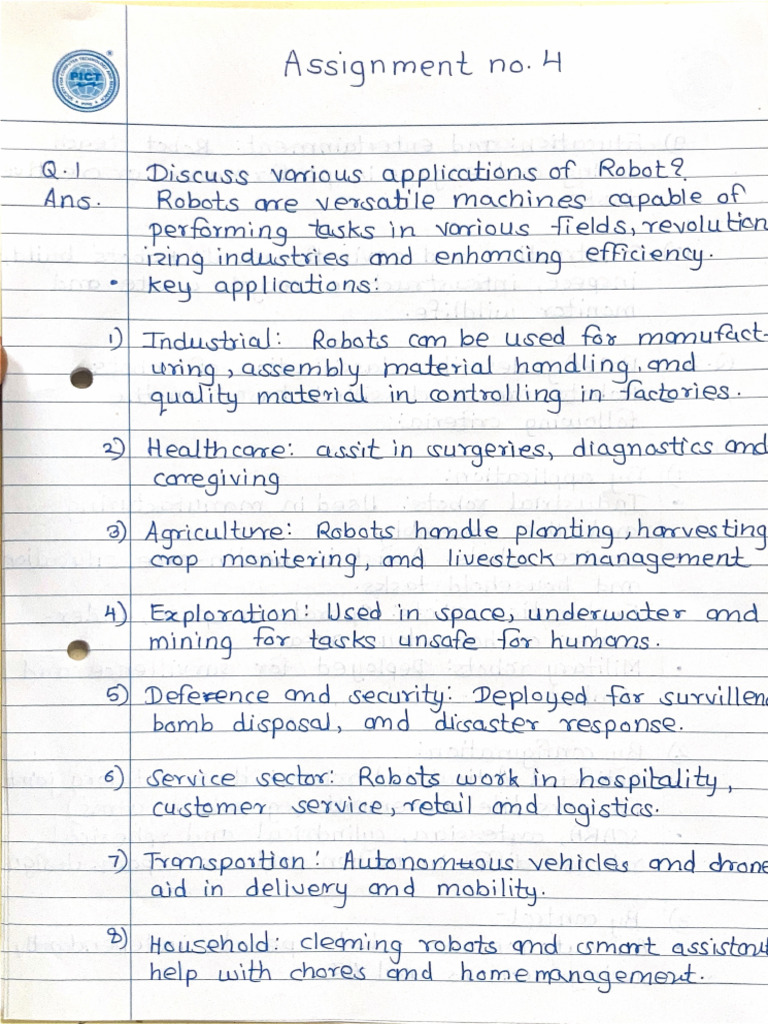 PICT
Assignment no. 4
Q.1 Discuss various applications of Robot?
Ans. Robots are versatile machines capable of
performing tasks in various fields, revolution
izing industries and enhancing efficiency.
• key applications:
1) Industrial: Robots can be used for manufact-
uring, assembly material handling, and
quality material in controlling in factories.
2) Healthcare: assit in surgeries, diagnostics and
caregiving
3) Agriculture: Robots handle planting, harvesting
crop monitering, and livestock management
4) Exploration: Used in space, underwater and
mining for tasks unsafe for humans.
5) Deference and security: Deployed for survillenc
bomb disposal, and disaster response.
6) Service sector: Robots work in hospitality,
customer service, retail and logistics.
7) Transportion: Autonomuous vehicles and drone
aid in delivery and mobility.
8) Household: cleaning robots and smart assistant
help with chores and home management.